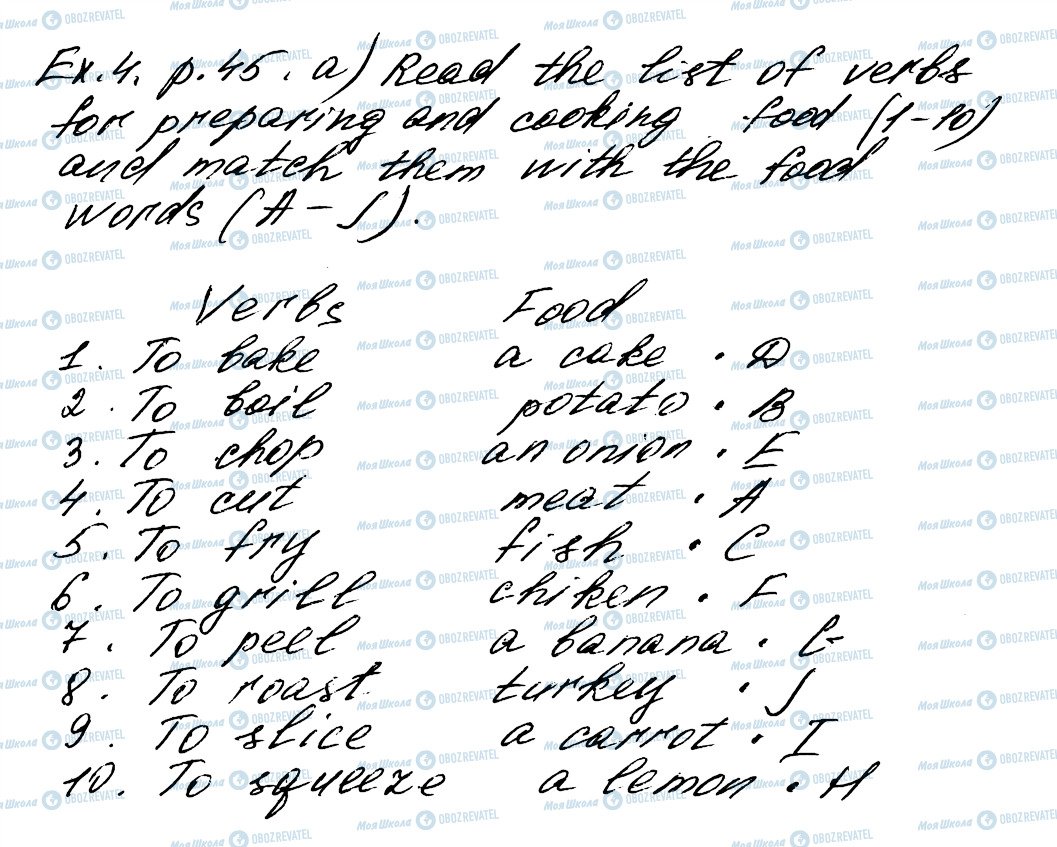 Ex.4. p.45. a) Read the list of verbs
for preparing and cooking food (1-10)
and match them with the food
words (A - J).
Verbs Food
1. To bake a cake . D
2. To boil potato . B
3. To chop an onion . E
4. To cut meat . A
5. To fry fish . C
6. To grill chiken . F
7. To peel a banana . G
8. To roast turkey . J
9. To slice a carrot . I
10. To squeeze a lemon . H